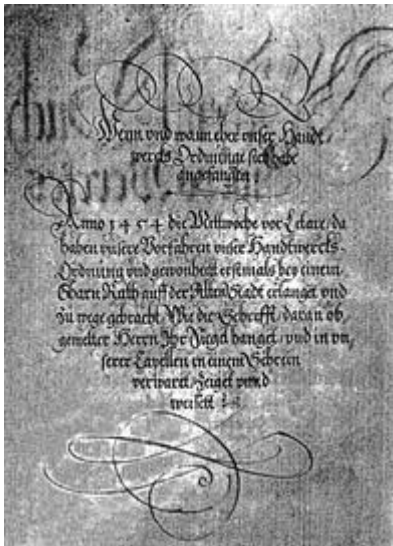 Wenn und wann eher unser Handt,
wercks Ordnunge sich habe
angefangen:
Anno 1454 die Mittwoche vor Letare, da
haben unsere Vorfahren unser Handtwercks,
Ordnung und gewonheitt erstmals bey einem
Erbarn Rath auff der Alten Stadt erlanget und
zu wege gebracht Wie die Schrifft, daran ob,
gemelter Herrn Ihr Siegel hanget, und in un,
serer Capellen in einem Schrein
verwaret, Zeiget unnd
weisett :